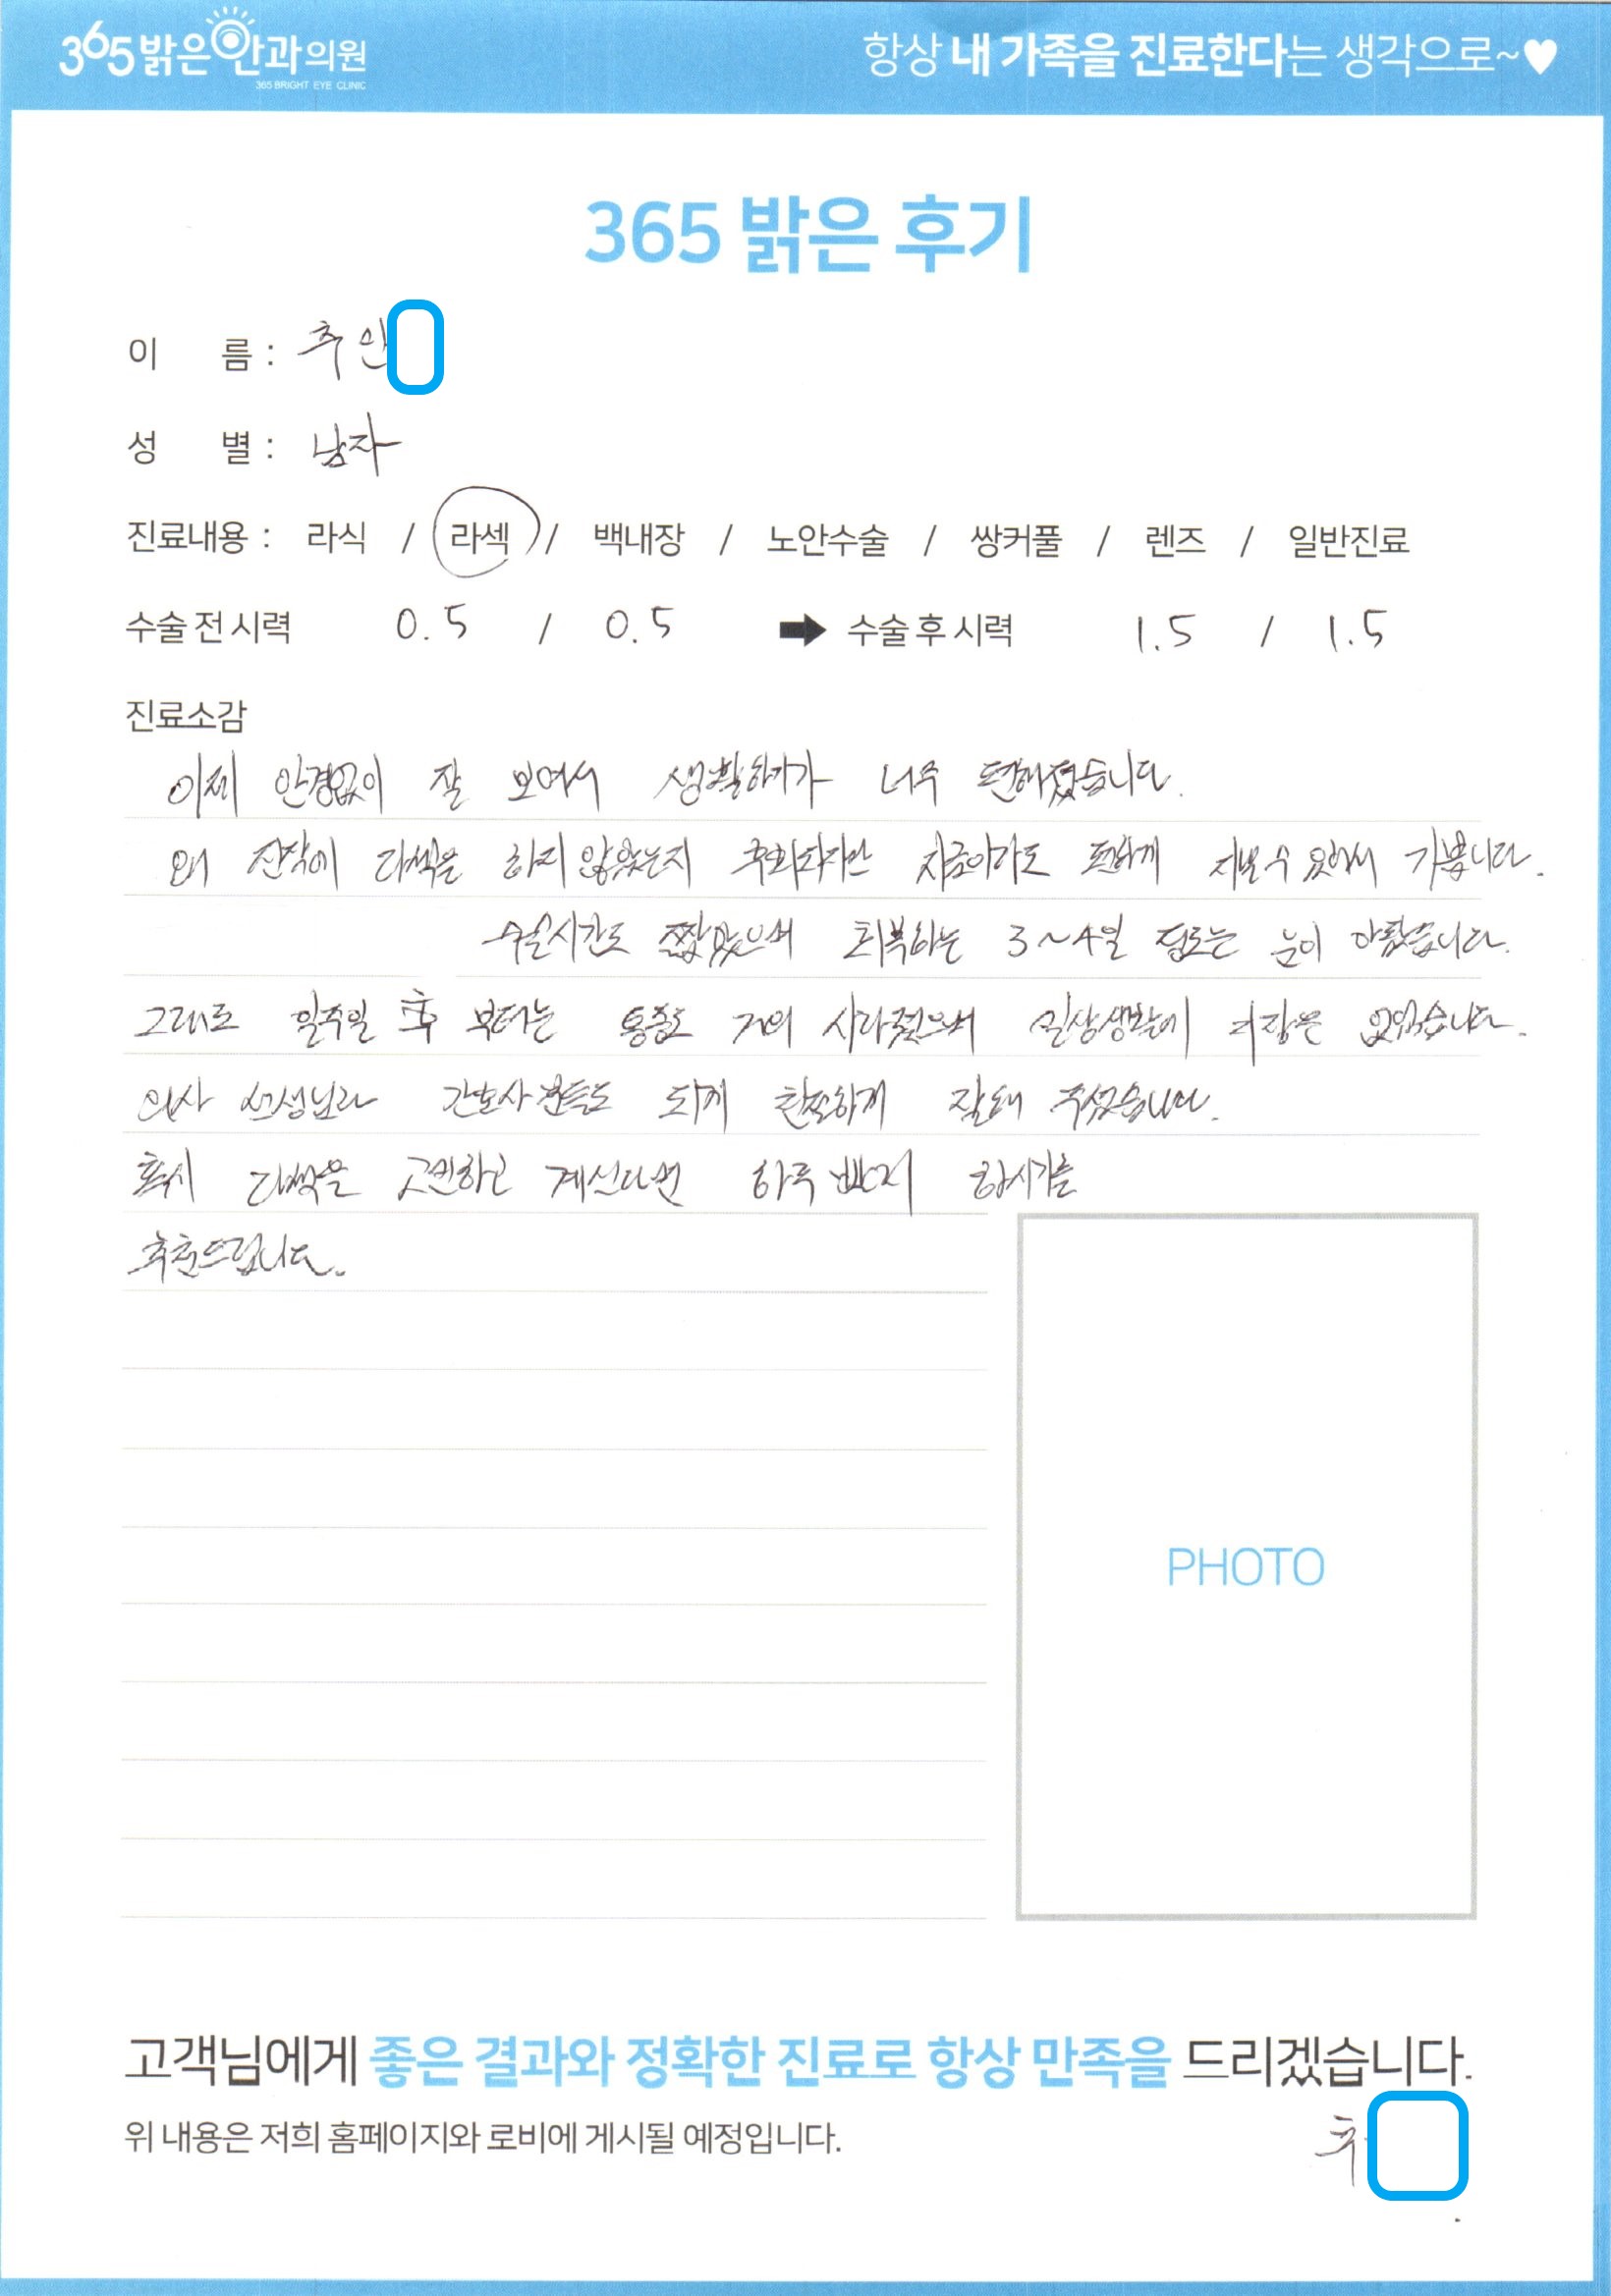 365밝은안과의원
365 BRIGHT EYE CLINIC
항상 내 가족을 진료한다는 생각으로~♥
365 밝은 후기
이 름 : 추인
성 별 : 남자
진료내용 : 라식 / 라섹 / 백내장 / 노안수술 / 쌍커풀 / 렌즈 / 일반진료
수술 전 시력 0.5 / 0.5 ➡ 수술 후 시력 1.5 / 1.5
진료소감
이제 안경없이 잘 보여서 생활하기가 너무 편해졌습니다.
왜 진작에 라섹을 하지 않았는지 후회되지만 지금이라도 편하게 지낼 수 있어서 기쁩니다.
수술시간도 짧았으며 회복하는 3~4일 정도는 눈이 아팠습니다.
그래도 일주일 후 부터는 통증도 거의 사라졌으며 일상생활에 지장은 없었습니다.
의사 선생님과 간호사 분들도 되게 친절하게 잘해 주셨습니다.
혹시 라섹을 고민하고 계신다면 하루 빨리 하시기를
추천드립니다.
PHOTO
고객님에게 좋은 결과와 정확한 진료로 항상 만족을 드리겠습니다.
위 내용은 저희 홈페이지와 로비에 게시될 예정입니다.
추